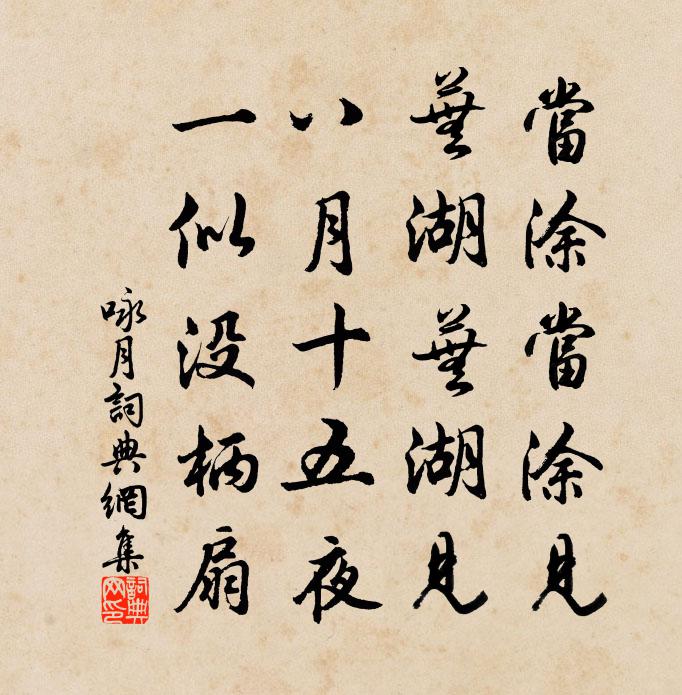 當涂當涂見
蕪湖蕪湖見
八月十五夜
一似没柄扇
咏月詞典網集
詞典網印